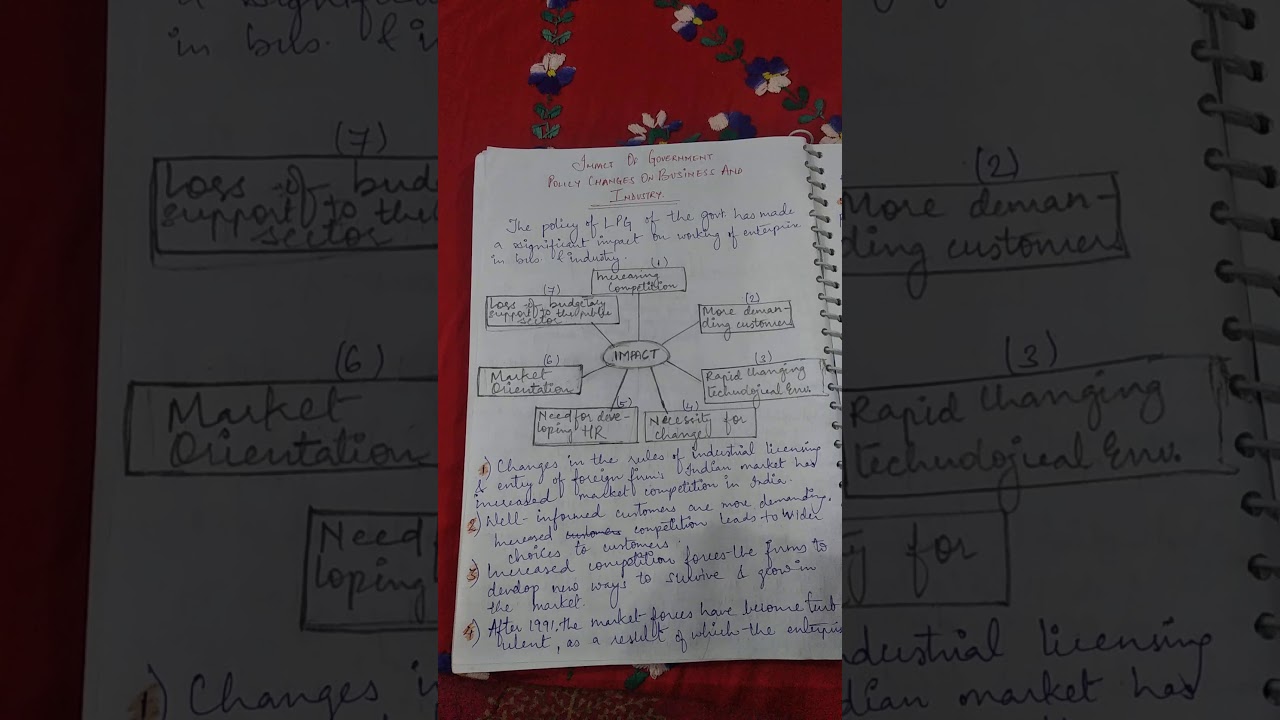 IMPACT OF GOVERNMENT
POLICY CHANGES ON BUSINESS AND
INDUSTRY
The policy of LPG of the govt. has made
a significant impact on working of enterprise
in bus. & industry.
(1)
Increasing
Competition
(2)
More deman-
ding customers
(3)
Rapid Changing
technological Env.
(4)
Necessity for
change
(5)
Need for deve-
loping HR
(6)
Market
Orientation
(7)
Loss of budgetary
support to the public
sector
IMPACT
1) Changes in the rules of industrial licensing
& entry of foreign firms Indian market has
increased market competition in India.
2) Well-informed customers are more demanding.
Increased customers competition leads to wider
choices to customers.
3) Increased competition forces the firms to
develop new ways to survive & grow in
the market.
4) After 1991, the market forces have become turb
ulent, as a result of which the enterpris